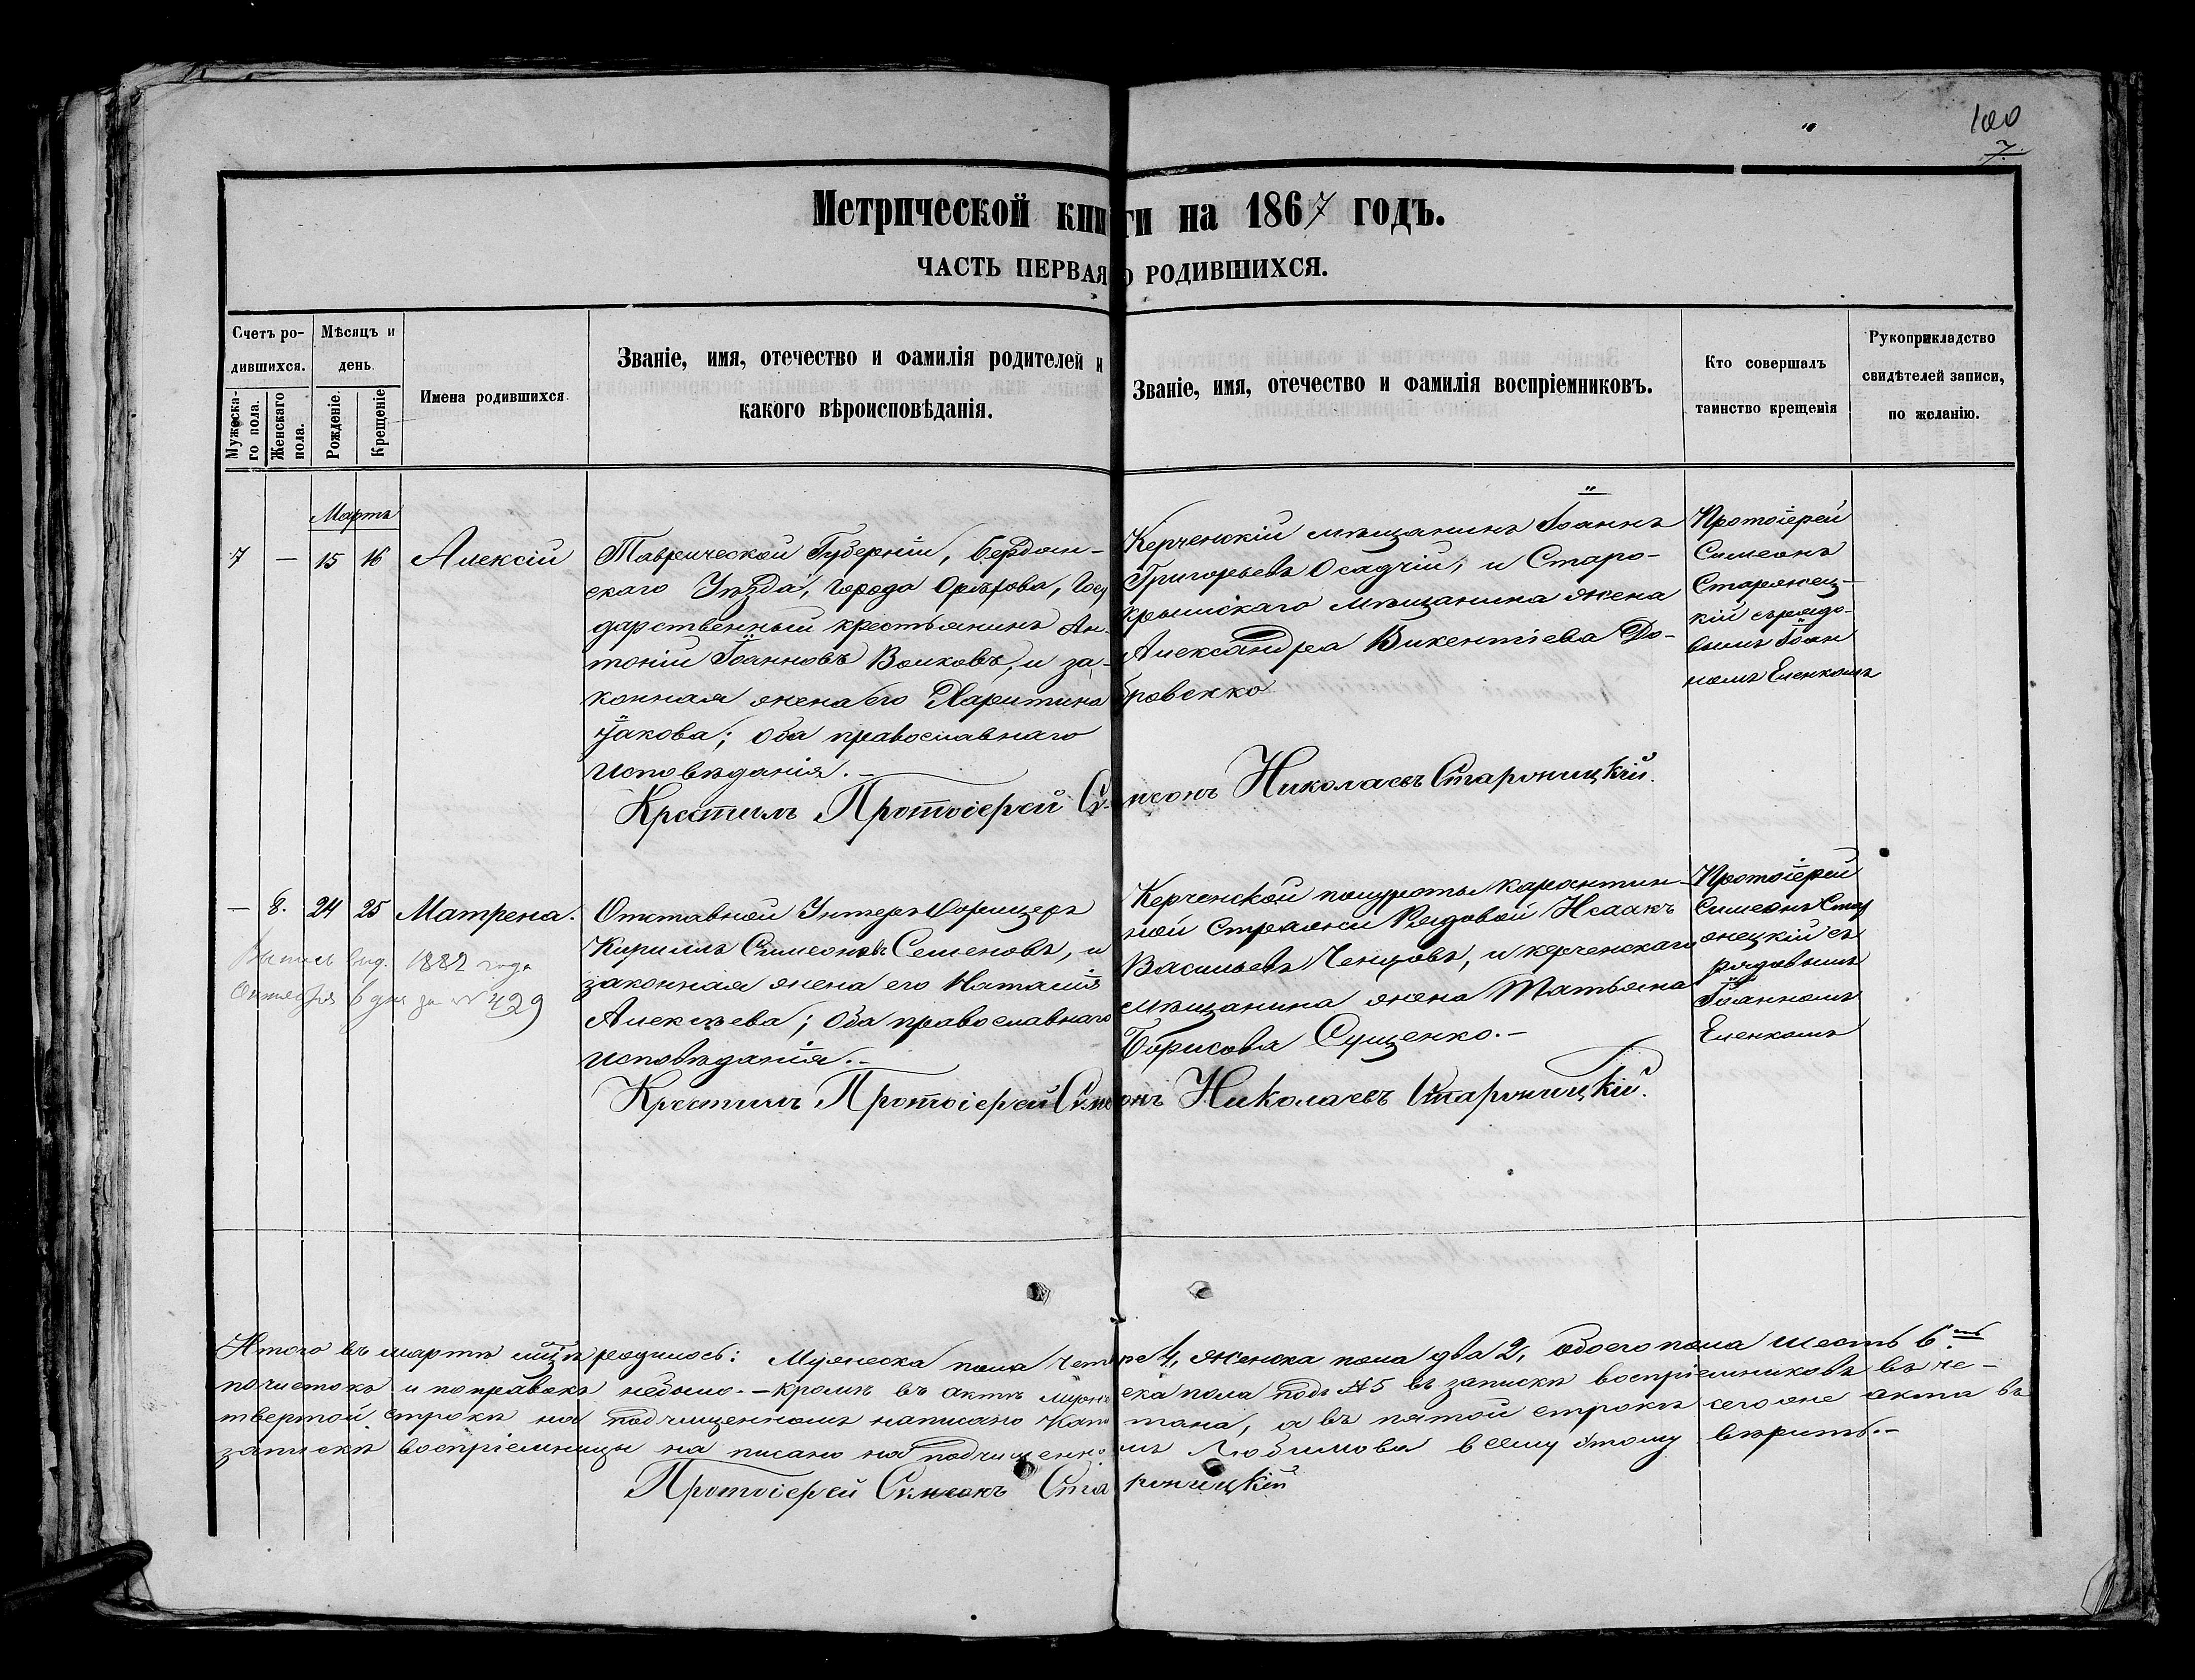 100
7.
Метрической книги на 1867 годъ.
ЧАСТЬ ПЕРВАЯ О РОДИВШИХСЯ.
Счетъ ро-
дившихся.
Мужеска-
го пола.
Женскаго
пола.
Мѣсяцъ и
день.
Рожденіе.
Крещеніе
Имена родившихся.
Званіе, имя, отечество и фамилія родителей и
какого вѣроисповѣданія.
Званіе, имя, отечество и фамилія воспріемниковъ.
Кто совершалъ
таинство крещенія
Рукоприкладство
свидѣтелей записи,
по желанію.
Мартъ
7 — 15 16 Алексій
Таврической Губерніи, Бердян-
скаго Уѣзда, города Орѣхова, Госу
дарственный крестьянинъ Ан-
тоній Іоанновъ Волковъ, и за-
конная жена его Харитина
Іакова; оба православнаго
исповѣданія.-
Керченскій мѣщанинъ Іоаннъ
Григорьевъ Осадчій, и Старо-
крымскаго мѣщанина жена
Александра Викентіева До-
бровенко
Протоіерей
Симеонъ
Старонец-
кій съ рядо-
вымъ Іоан
номъ Еленкомъ
Крестилъ Протоіерей Симеонъ Николаевъ Староницкій.
— 8. 24 25 Матрена.
Отставной Унтеръ Офицеръ
Кирилъ Симеоновъ Семеновъ, и
законная жена его Наталія
Алексѣева; Оба православнаго
исповѣданія.-
Керченской полуроты карантин-
ной Стражи Рядовой Исаакъ
Васильевъ Ченцовъ, и керченскаго
мѣщанина жена Татьяна
Борисова Сущенко.-
Протоіерей
Симеонъ Стар
онецкій съ
рядовымъ
Іоанномъ
Еленкомъ
выд. 1882 года
Октября 6 дня за № 429
Крестилъ Протоіерей Симеонъ Николаевъ Староницкій.
Итого въ мартѣ мцѣ родилось: Мужеска пола четыре 4, женска пола два 2, обоего пола шесть 6.
почистокъ и поправокъ небыло.- кромѣ въ актѣ мужеска пола подъ №5 въ запискѣ воспріемниковъ въ че-
твертой строкѣ на подчищенномъ написано Капитана, а въ пятой строкѣ сегоже акта въ
запискѣ воспріемницы написано на подчищенномъ Любимова всему этому вѣрить.-
Протоіерей Симеонъ Староницкій